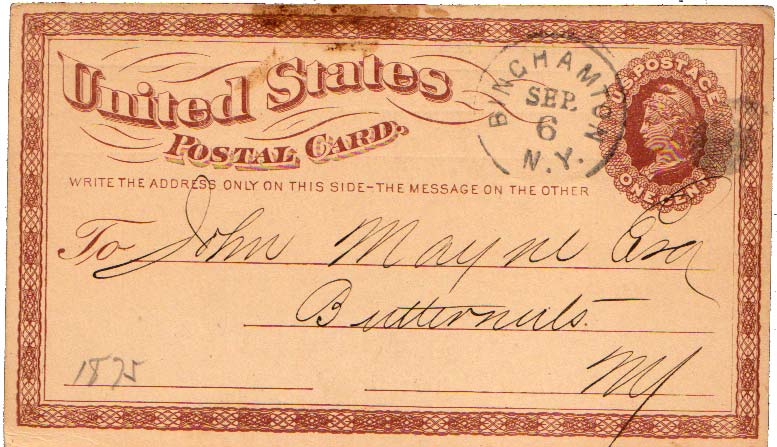 United States
POSTAL CARD.
WRITE THE ADDRESS ONLY ON THIS SIDE–THE MESSAGE ON THE OTHER
BINGHAMTON
SEP.
6
N.Y.
U.S. POSTAGE
ONE CENT
To John Mayne Esq
Butternuts.
NY
1875